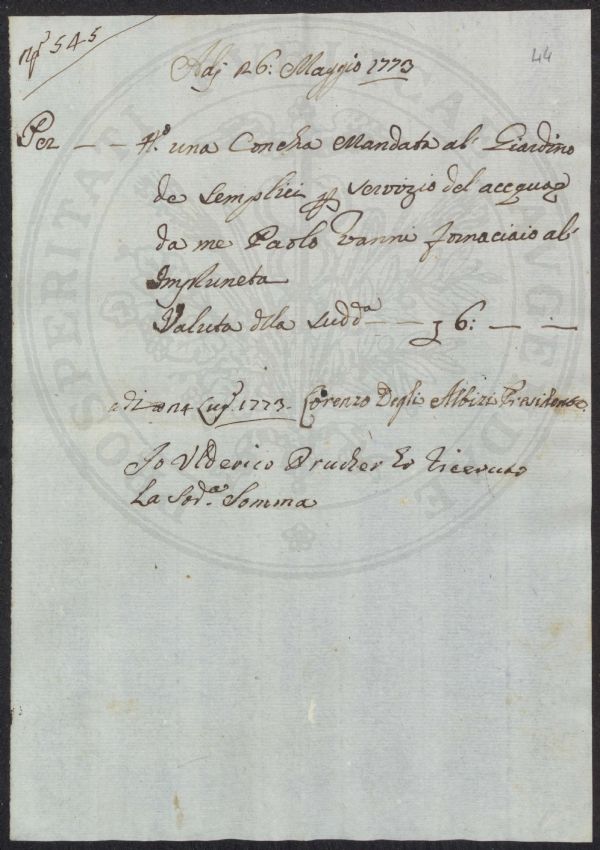 nº 545
44
Adj 26: Maggio 1773
Per — — Nº. una Concha Mandata al' Giardino
de Semplici p servizio del acequag
da me Paolo Vanni fornaciaio al'
Impruneta
Valuta della Sudd.ª — — 36: — —
adi 14 Lug.º 1773. Lorenzo Degli Albizi Presidente
Io Ulderico Prucher ho riceuuto
La Sod.ª Somma